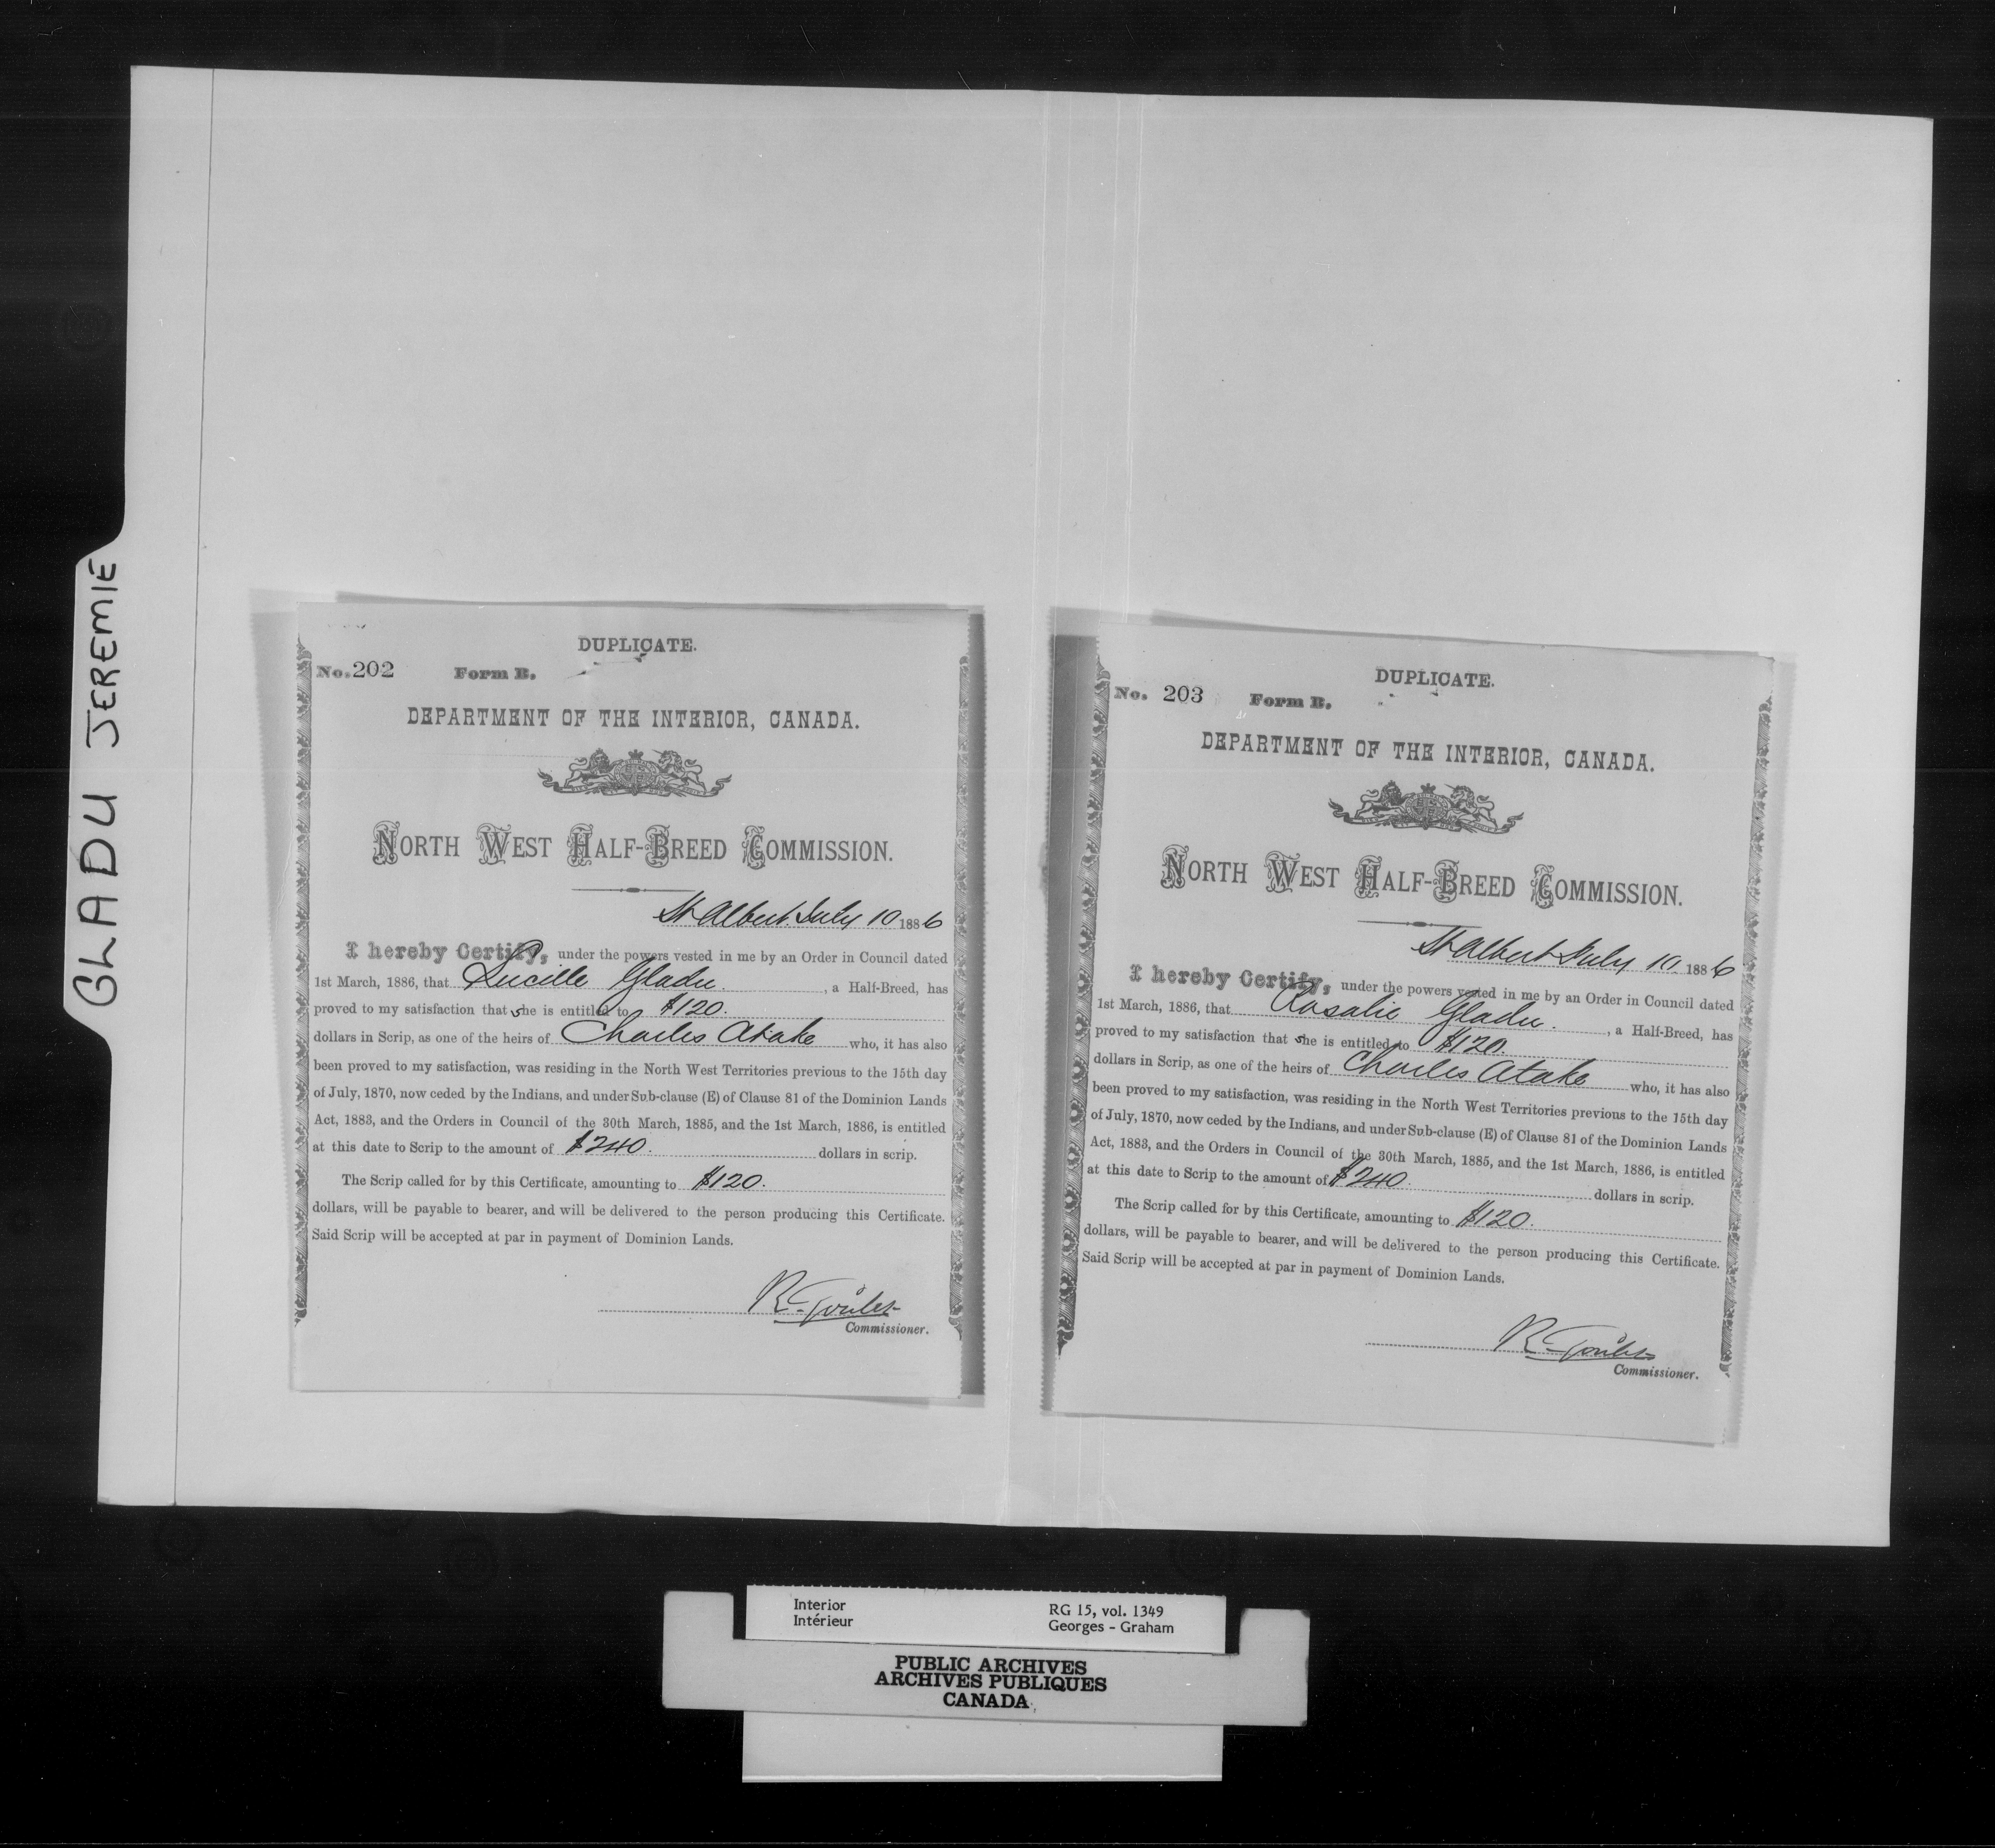 GLADU JEREMIE
DUPLICATE.
No. 202 Form B.
DEPARTMENT OF THE INTERIOR, CANADA.
NORTH WEST HALF-BREED COMMISSION.
St Albert July 10 1886
I hereby Certify, under the powers vested in me by an Order in Council dated
1st March, 1886, that Lucille Gladu. , a Half-Breed, has
proved to my satisfaction that she is entitled to $120.
dollars in Scrip, as one of the heirs of Charles Atake who, it has also
been proved to my satisfaction, was residing in the North West Territories previous to the 15th day
of July, 1870, now ceded by the Indians, and under Sub-clause (E) of Clause 81 of the Dominion Lands
Act, 1883, and the Orders in Council of the 30th March, 1885, and the 1st March, 1886, is entitled
at this date to Scrip to the amount of $240. dollars in scrip.
The Scrip called for by this Certificate, amounting to $120.
dollars, will be payable to bearer, and will be delivered to the person producing this Certificate.
Said Scrip will be accepted at par in payment of Dominion Lands.
R. Goulet
Commissioner.
DUPLICATE.
No. 203 Form B.
DEPARTMENT OF THE INTERIOR, CANADA.
NORTH WEST HALF-BREED COMMISSION.
St Albert July 10 1886
I hereby Certify, under the powers vested in me by an Order in Council dated
1st March, 1886, that Rosalie Gladu. , a Half-Breed, has
proved to my satisfaction that she is entitled to $120.
dollars in Scrip, as one of the heirs of Charles Atake who, it has also
been proved to my satisfaction, was residing in the North West Territories previous to the 15th day
of July, 1870, now ceded by the Indians, and under Sub-clause (E) of Clause 81 of the Dominion Lands
Act, 1883, and the Orders in Council of the 30th March, 1885, and the 1st March, 1886, is entitled
at this date to Scrip to the amount of $240 dollars in scrip.
The Scrip called for by this Certificate, amounting to $120.
dollars, will be payable to bearer, and will be delivered to the person producing this Certificate.
Said Scrip will be accepted at par in payment of Dominion Lands.
R. Goulet
Commissioner.
Interior RG 15, vol. 1349
Intérieur Georges - Graham
PUBLIC ARCHIVES
ARCHIVES PUBLIQUES
CANADA